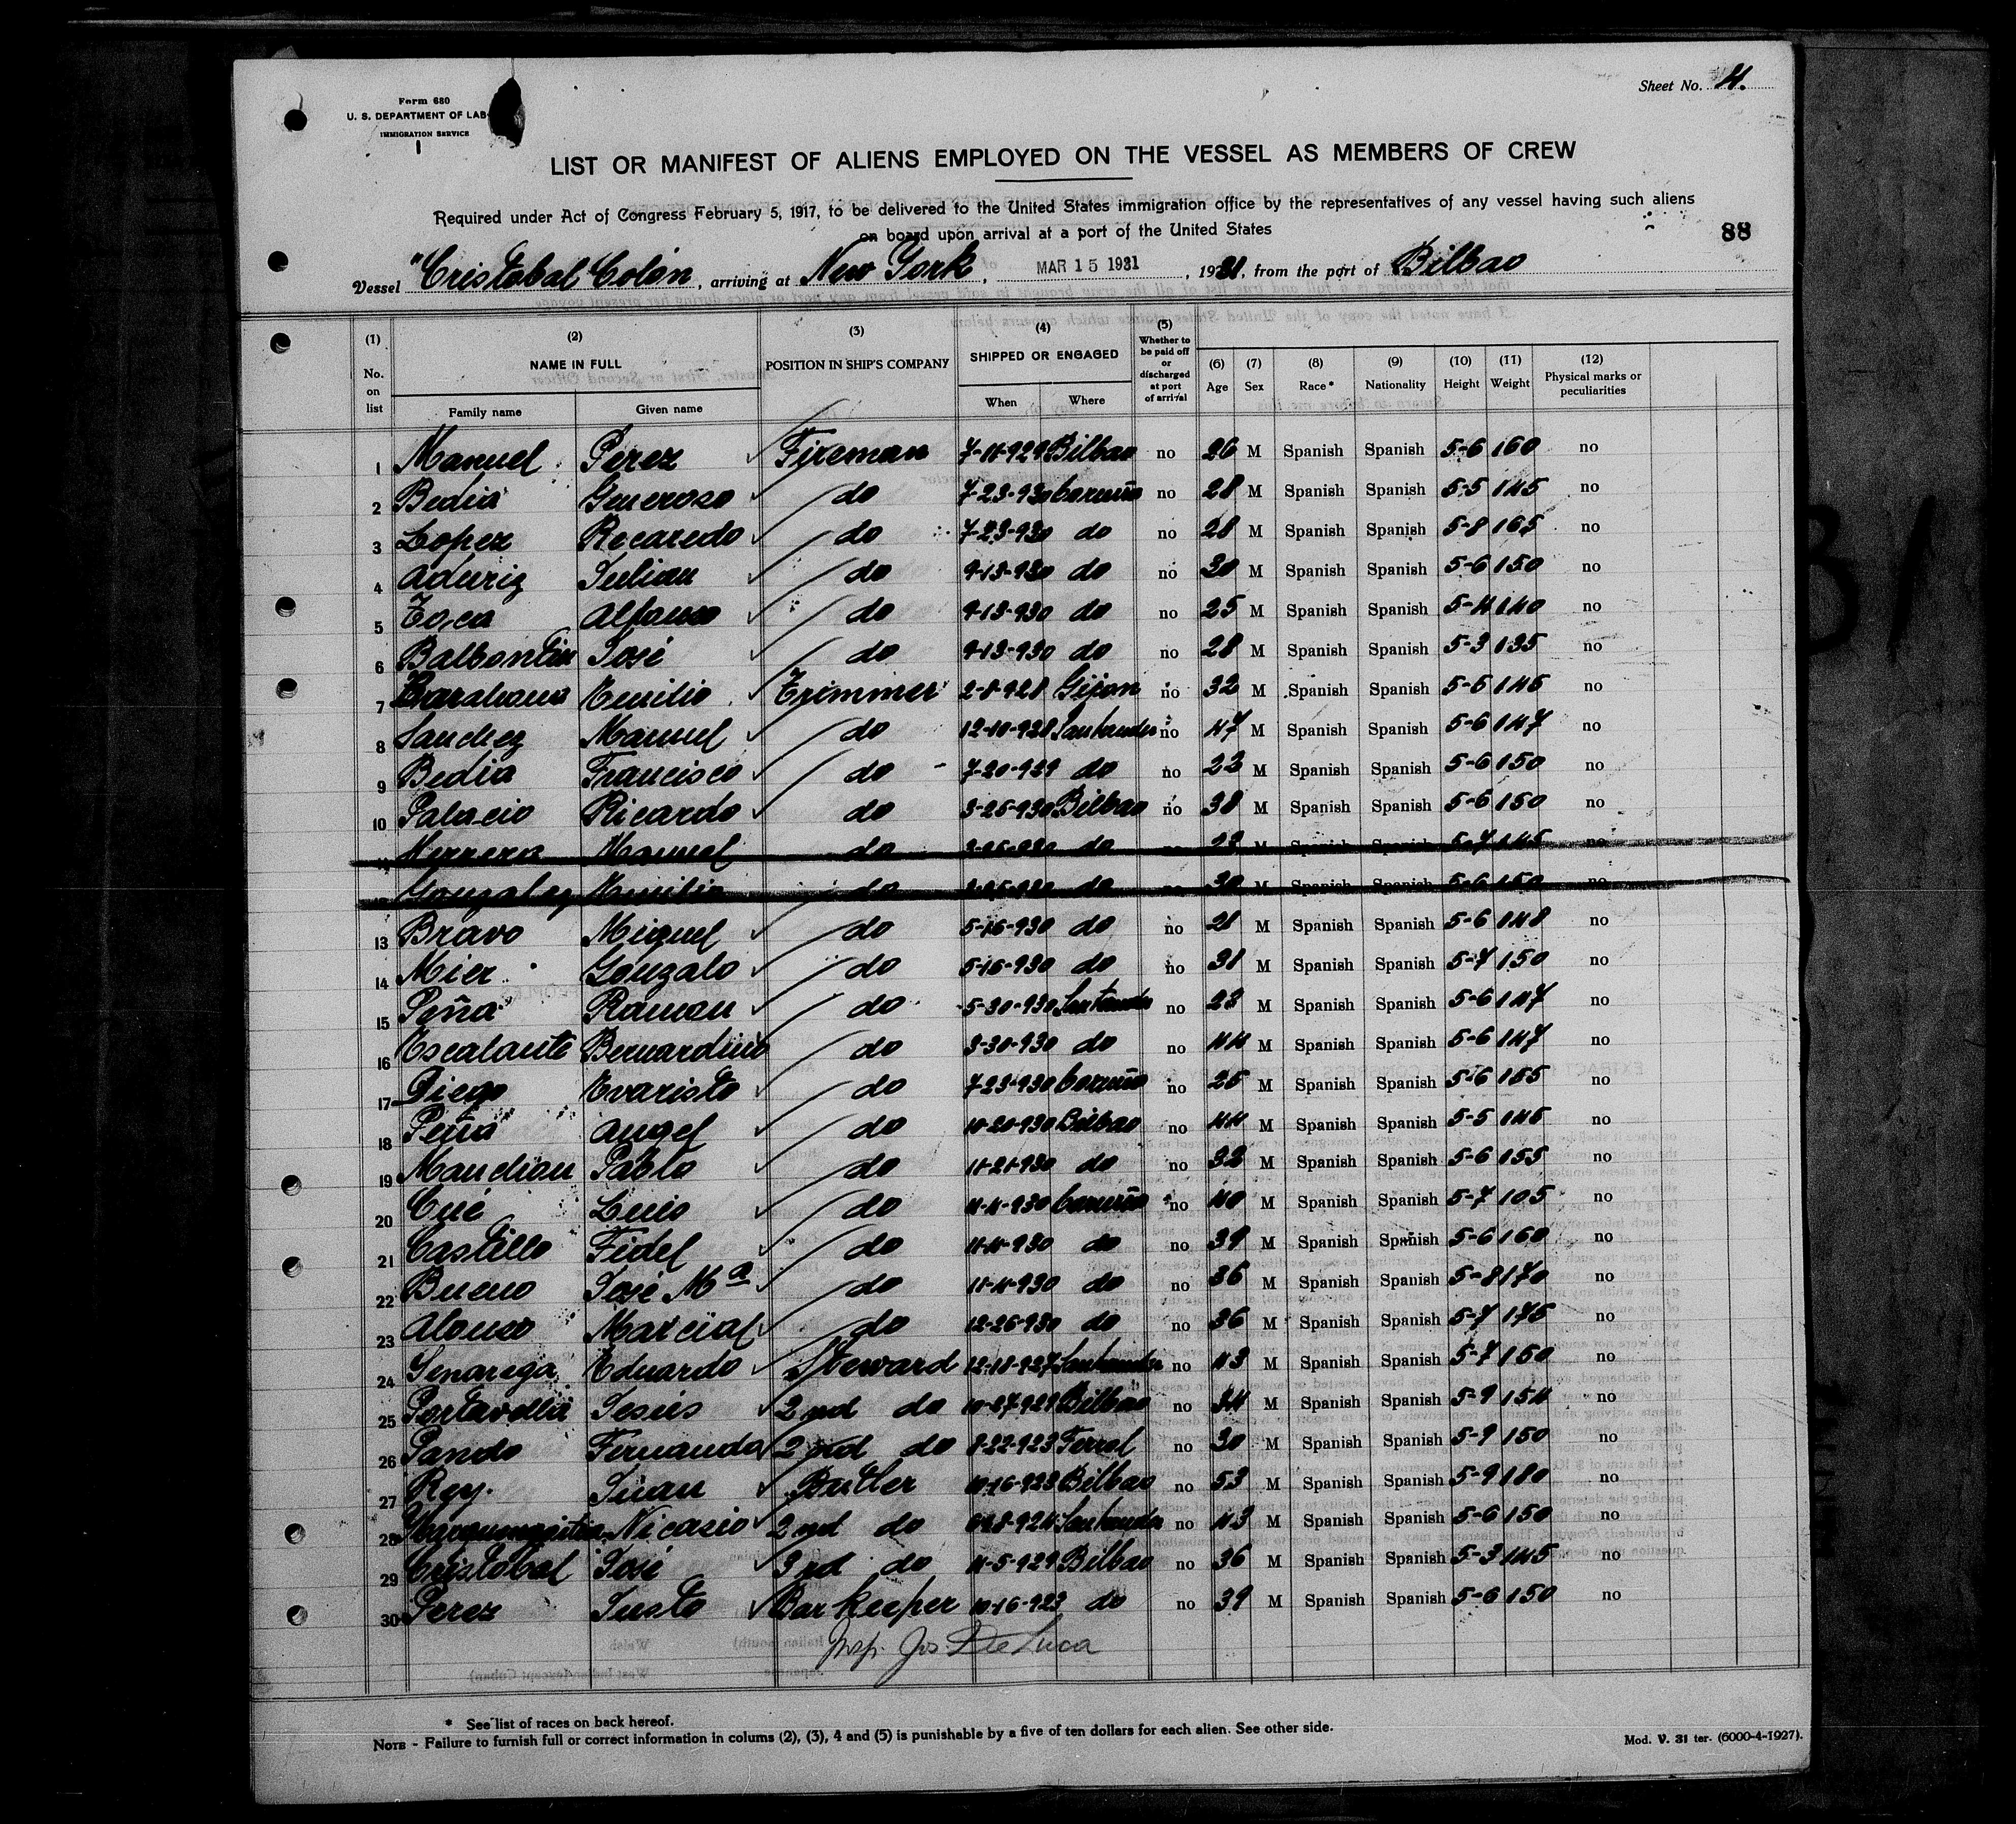 Sheet No. 4.
Form 680
U. S. DEPARTMENT OF LAB
IMMIGRATION SERVICE
LIST OR MANIFEST OF ALIENS EMPLOYED ON THE VESSEL AS MEMBERS OF CREW
Required under Act of Congress February 5, 1917, to be delivered to the United States immigration office by the representatives of any vessel having such aliens
on board upon arrival at a port of the United States
88
Vessel "Cristobal Colón, arriving at New York, MAR 15 1931, 1931, from the port of Bilbao
(1) No. on list (2) NAME IN FULL Family name Given name (3) POSITION IN SHIP'S COMPANY (4) SHIPPED OR ENGAGED When Where (5) Whether to be paid off or discharged at port of arrival (6) Age (7) Sex (8) Race* (9) Nationality (10) Height (11) Weight (12) Physical marks or peculiarities
1 Manuel Perez Fireman 7-11-929 Bilbao no 26 M Spanish Spanish 5-6 160 no
2 Bedia Generoso do 7-23-930 Coruña no 28 M Spanish Spanish 5-5 145 no
3 Lopez Recaredo do 7-23-930 do no 28 M Spanish Spanish 5-8 165 no
4 Aduriz Julian do 9-13-930 do no 30 M Spanish Spanish 5-6 150 no
5 Toca Alfonso do 9-13-930 do no 25 M Spanish Spanish 5-4 140 no
6 Balbontin José do 9-13-930 do no 28 M Spanish Spanish 5-3 135 no
7 Emilio Trimmer 2-8-928 Gijon no 32 M Spanish Spanish 5-6 145 no
8 Sanchez Manuel do 12-10-928 Santander no 47 M Spanish Spanish 5-6 147 no
9 Bedia Francisco do 7-20-929 do no 22 M Spanish Spanish 5-6 150 no
10 Palacio Ricardo do 3-26-930 Bilbao no 38 M Spanish Spanish 5-6 150 no
Herrera Manuel do do 23 M Spanish Spanish 5-7 145 no
Gonzalez Emilio do do 30 M Spanish Spanish 5-6 150 no
13 Bravo Miguel do 5-16-930 do no 21 M Spanish Spanish 5-6 148 no
14 Mier Gonzalo do 5-16-930 do no 31 M Spanish Spanish 5-7 150 no
15 Peña Ramon do 5-30-930 Santander no 23 M Spanish Spanish 5-6 147 no
16 Escalante Bernardino do 3-30-930 do no 44 M Spanish Spanish 5-6 147 no
17 Diego Evaristo do 7-23-930 Coruña no 25 M Spanish Spanish 5-6 155 no
18 Peña Angel do 10-20-930 Bilbao no 44 M Spanish Spanish 5-5 145 no
19 Pablo do 11-21-930 do no 32 M Spanish Spanish 5-6 155 no
20 Cué Luis do 11-11-930 Coruña no 40 M Spanish Spanish 5-7 105 no
21 Castillo Fidel do 11-11-930 do no 39 M Spanish Spanish 5-6 160 no
22 Bueno José Mª do 11-11-930 do no 36 M Spanish Spanish 5-8 170 no
23 Alonso Marcial do 12-26-930 do no 36 M Spanish Spanish 5-7 175 no
24 Senarega Eduardo Steward 12-18-927 Santander no 43 M Spanish Spanish 5-7 150 no
25 Jesús 2nd do 10-27-929 Bilbao no 34 M Spanish Spanish 5-9 154 no
26 Pando Fernando 2nd do 8-22-923 Ferrol no 30 M Spanish Spanish 5-9 150 no
27 Rey. Juan Butler 10-16-923 Bilbao no 53 M Spanish Spanish 5-9 180 no
28 Nicasio 2nd do Santander no 43 M Spanish Spanish 5-6 150 no
29 Cristobal José 3rd do 11-5-929 Bilbao no 36 M Spanish Spanish 5-3 145 no
30 Perez Justo Bar keeper 10-16-923 do no 39 M Spanish Spanish 5-6 150 no
Insp. Jos. De Luca
* See list of races on back hereof.
NOTE - Failure to furnish full or correct information in colums (2), (3), 4 and (5) is punishable by a five of ten dollars for each alien. See other side.
Mod. V. 31 ter. (6000-4-1927).